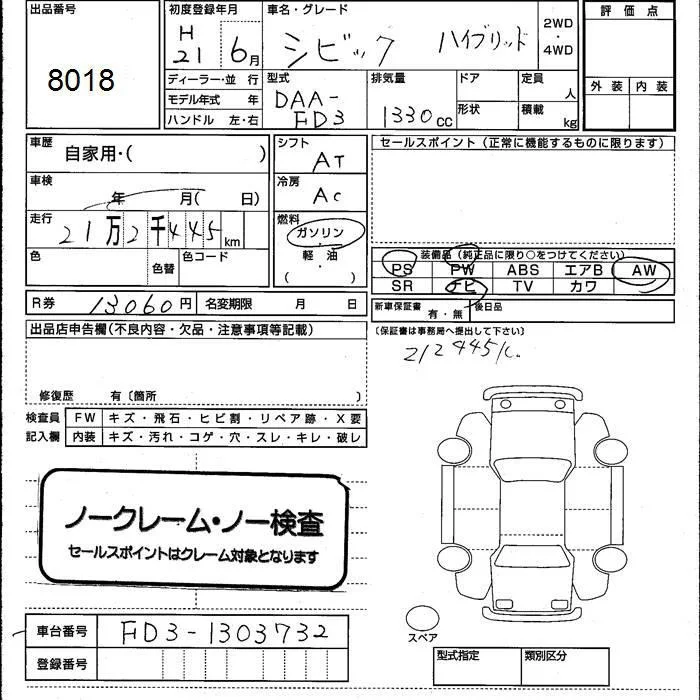 出品番号
8018
初度登録年月
H
21 6月
車名・グレード
シビック ハイブリッド
2WD
・
4WD
評価点
外装 内装
ディーラー・並 行
モデル年式 年
ハンドル 左・右
型式
DAA-
FD3
排気量
1330cc
ドア
形状
定員
人
積載
kg
車歴
自家用・( )
車検
年 月( 日)
走行
21万2千445km
色
色替
色コード
シフト
AT
冷房
AC
燃料
ガソリン・
軽 油
( )
セールスポイント(正常に機能するものに限ります)
装備品(純正品に限り○をつけてください)
PS PW ABS エアB AW
SR ナビ TV カワ
R券 13060円 名変期限 月 日
新車保証書
有・無
後日品
(保証書は事務局へ提出して下さい)
出品店申告欄(不良内容・欠品・注意事項等記載)
修復歴 有〔箇所 〕
検査員
記入欄
FW キズ・飛石・ヒビ割・リペア跡・X要
内装 キズ・汚れ・コゲ・穴・スレ・キレ・破レ
ノークレーム・ノー検査
セールスポイントはクレーム対象となります
車台番号 FD3-1303732
登録番号
スペア
型式指定 類別区分